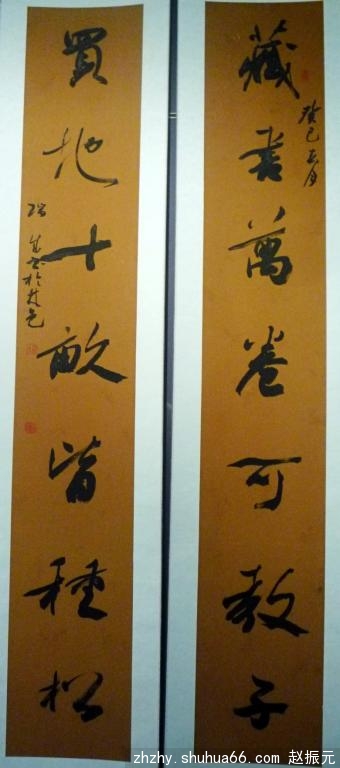 藏書萬卷可教子
癸巳
買地十畝皆種松
書於
zhzhy.shuhua66.com 赵振元